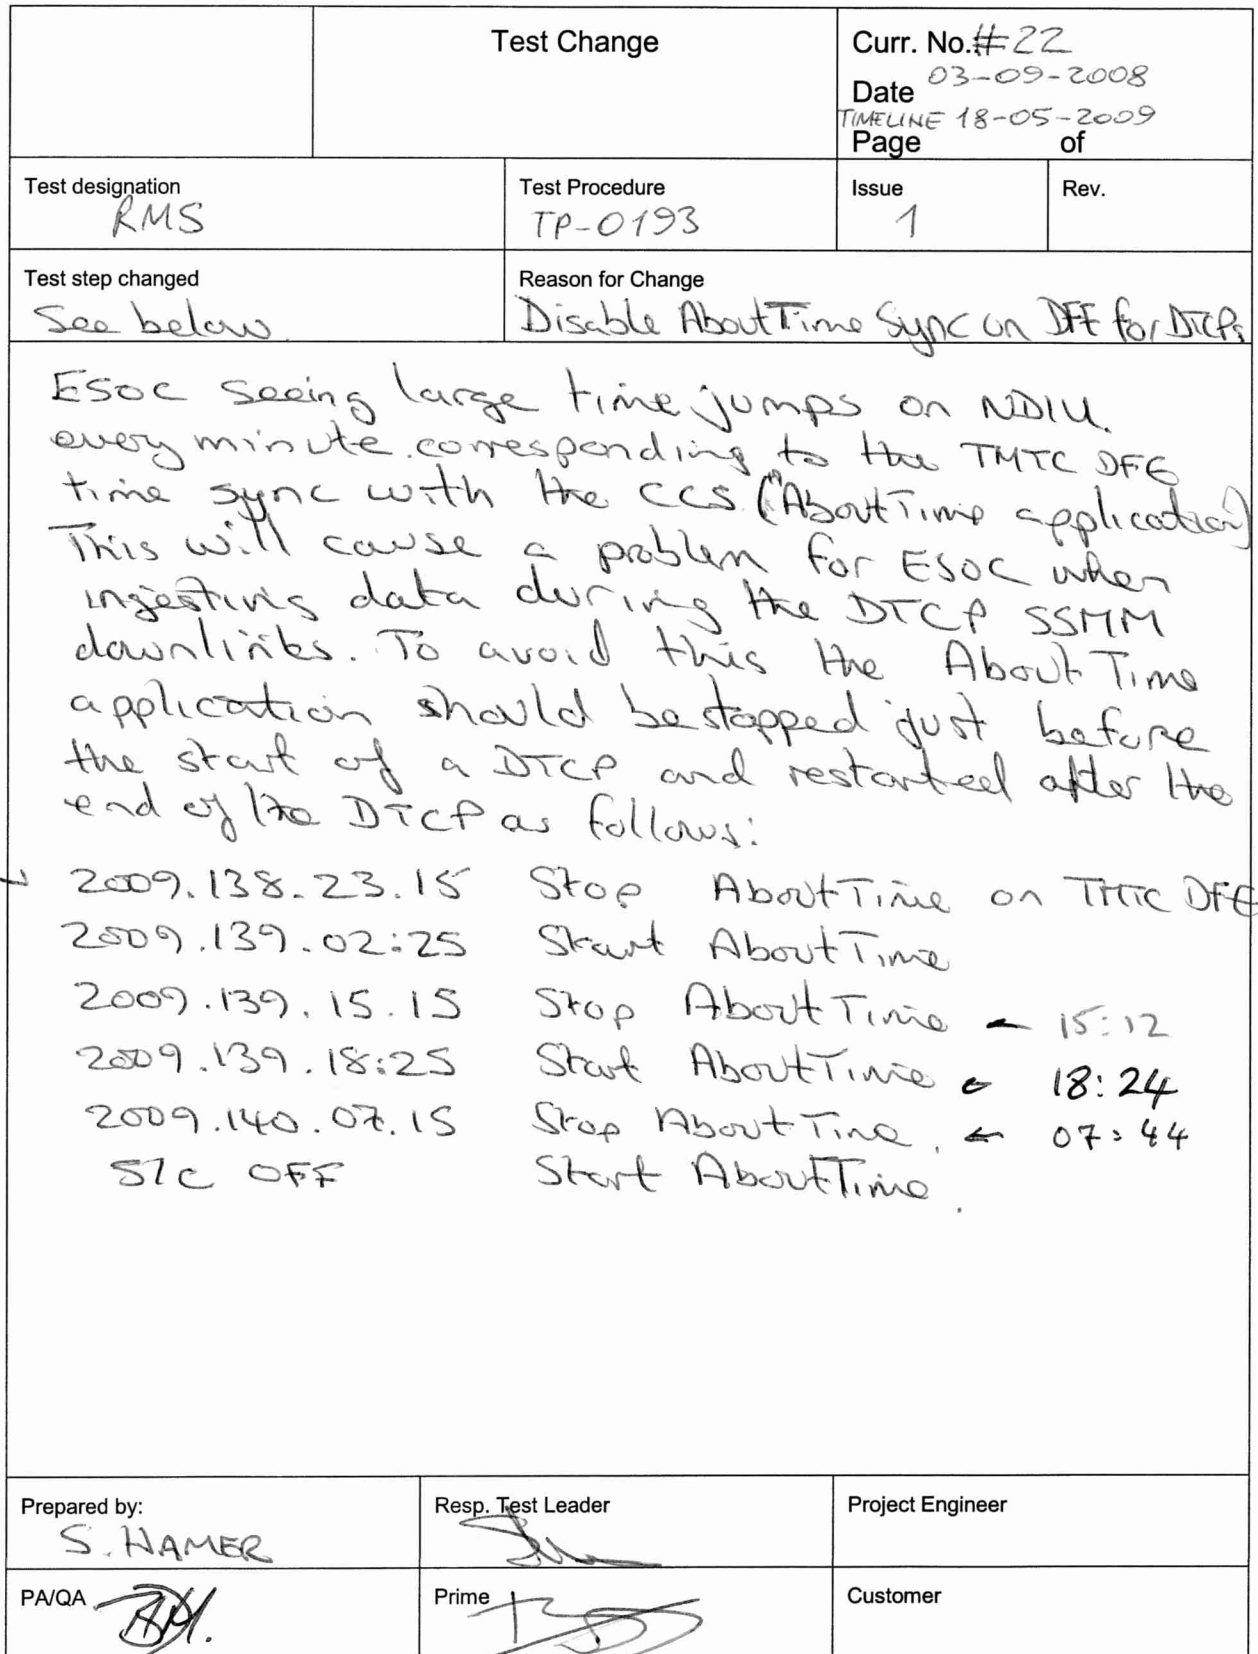 Test Change
Curr. No. #22
Date 03-09-2008
TIMELINE 18-05-2009
Page of
Test designation
RMS
Test Procedure
TP-0193
Issue
1
Rev.
Test step changed
See below
Reason for Change
Disable AboutTime Sync on DFE for DTCPs
ESOC seeing large time jumps on NDIU
every minute corresponding to the TMTC DFE
time sync with the CCS ("AboutTime application)
This will cause a problem for ESOC when
ingesting data during the DTCP SSMM
downlinks. To avoid this the AboutTime
application should be stopped just before
the start of a DTCP and restarted after the
end of the DTCP as follows:
2009.138.23.15 Stop AboutTime on TMTC DFE
2009.139.02:25 Start AboutTime
2009.139.15.15 Stop AboutTime ← 15:12
2009.139.18:25 Start AboutTime ← 18:24
2009.140.07.15 Stop AboutTime. ← 07:44
S/C OFF Start AboutTime.
Prepared by:
S. HAMER
Resp. Test Leader
Project Engineer
PA/QA
Prime
Customer